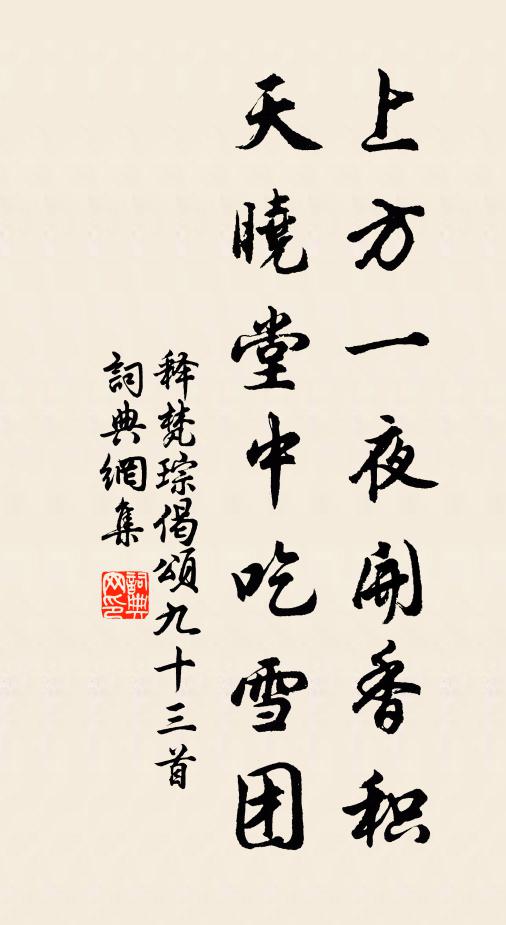 上方一夜開香积
天曉堂中吃雪团
释梵琮偈頌九十三首
詞典網集
詞典网印